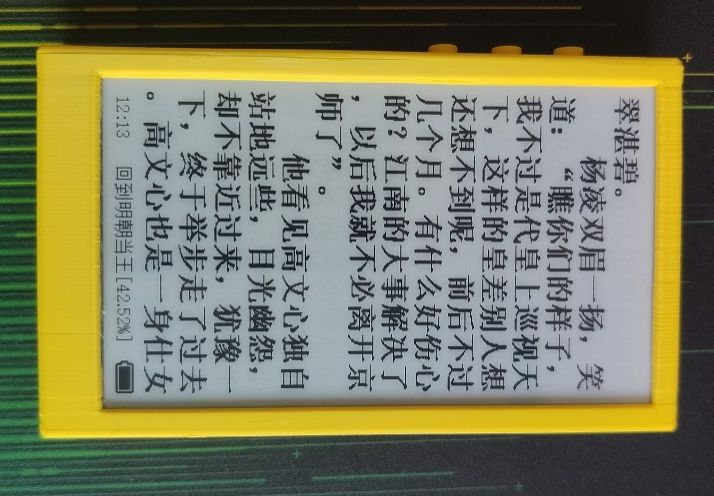 翠湛碧。
杨凌双眉一扬，笑
道：“瞧你们的样子，
我不过是代皇上巡视天
下，这样的皇差别人想
还想不到呢，前后不过
几个月。有什么好伤心
的？江南的大事解决了
，以后我就不必离开京
师了”。
他看见高文心独自
站地远些，目光幽怨，
却不靠近过来，犹豫一
下，终于举步走了过去
。高文心也是一身仕女
12:13 回到明朝当王[42.52%]